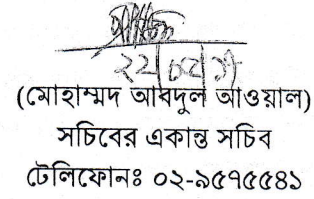 (মোহাম্মদ আবদুল আওয়াল)
সচিবের একান্ত সচিব
টেলিফোনঃ ০২-৯৫৭৫৫৪১